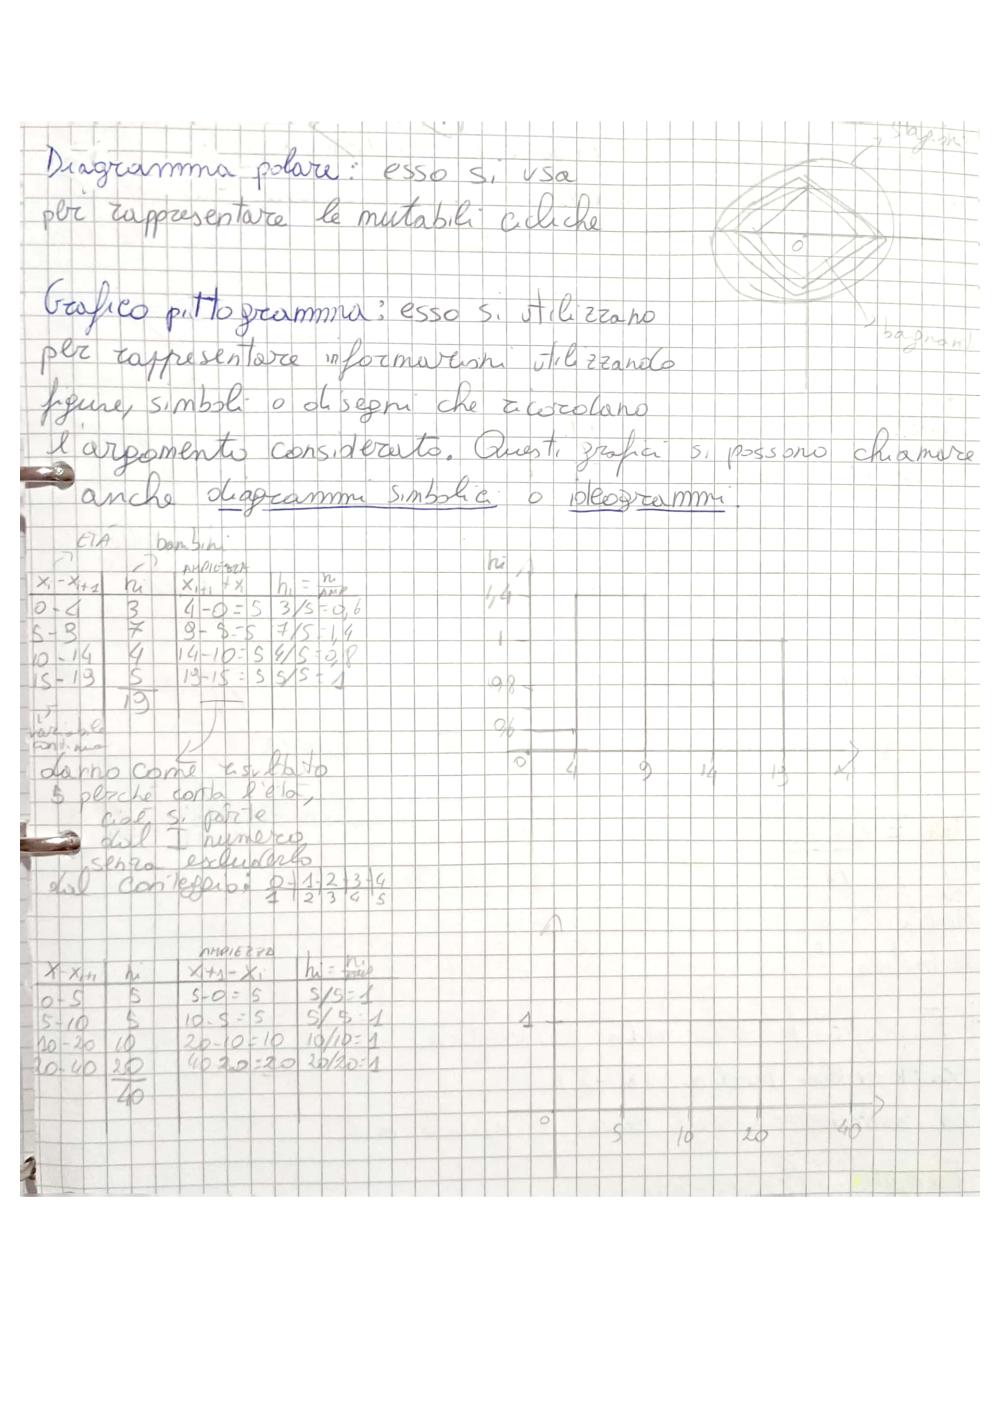 Diagramma polare: esso si usa
per rappresentare le mutabili cicliche
Grafico pittogramma: esso si utilizzano
per rappresentare informazioni utilizzando
figure, simboli o disegni che ricordano
l'argomento considerato. Questi grafici si possono chiamare
anche diagrammi simbolici o ideogrammi.
O
bagnanti
ETÀ bambini
AMPIEZZA
xi-xi+1 ni xi+1 + xi hi = ni/AMP
0-4 3 4-0=5 3/5=0,6
5-9 7 9-5=5 7/5=1,4
10-14 4 14-10=5 4/5=0,8
15-19 5 19-15=5 5/5=1
19
variabile
continua
danno come risultato
5 perché conta l'età,
cioè si parte
dal I numero
senza escluderlo
dal conteggio: 0-1-2-3-4
1 2 3 4 5
hi
1,4
1
0,8
0,6
0 4 9 14 19 xi
AMPIEZZA
X-Xi+1 ni Xi+1-Xi hi = ni/amp
0-5 5 5-0=5 5/5=1
5-10 5 10-5=5 5/5=1
10-20 10 20-10=10 10/10=1
20-40 20 40-20=20 20/20=1
40
1
0 5 10 20 40